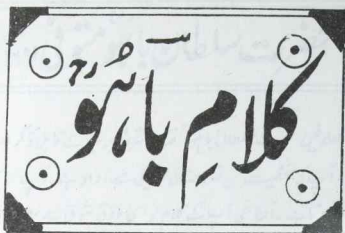 کلامِ باہُوؒ